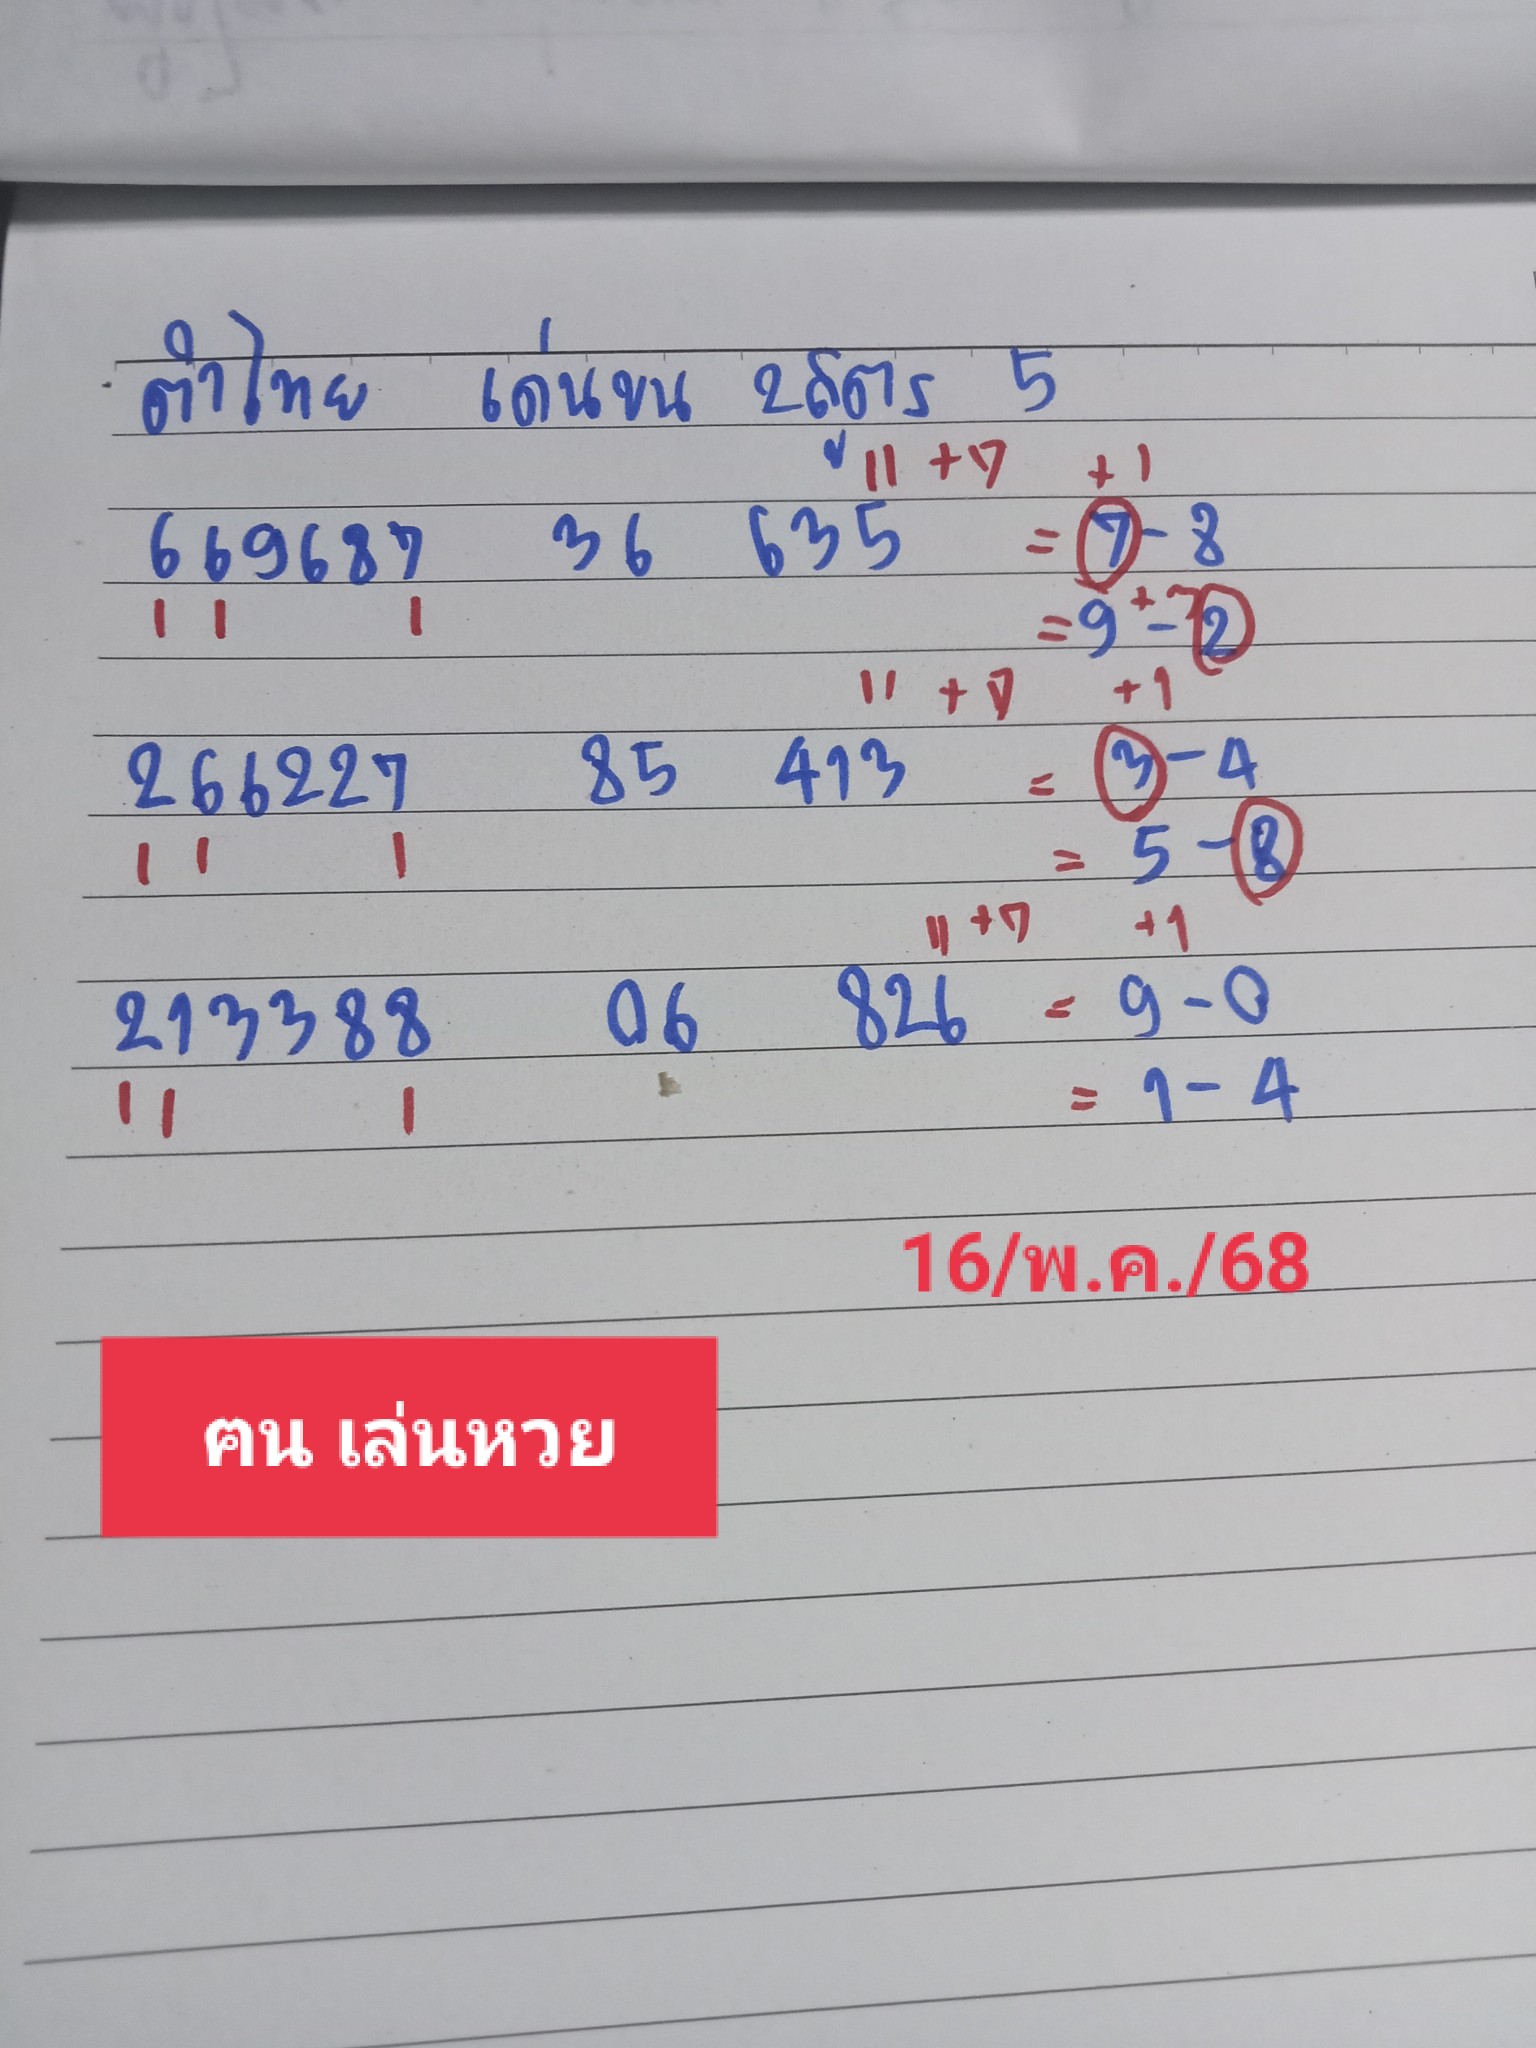 ตำไทย เด่นชน 2สูตร 5
11 +7 +1
669687 36 635 = 7-8
1 1 1 +3
= 9-2
11 +7 +1
266227 85 413 = 3-4
1 1 1 = 5-8
11 +7 +1
213388 06 826 = 9-0
1 1 1 = 1-4
16/พ.ค./68
ฅน เล่นหวย